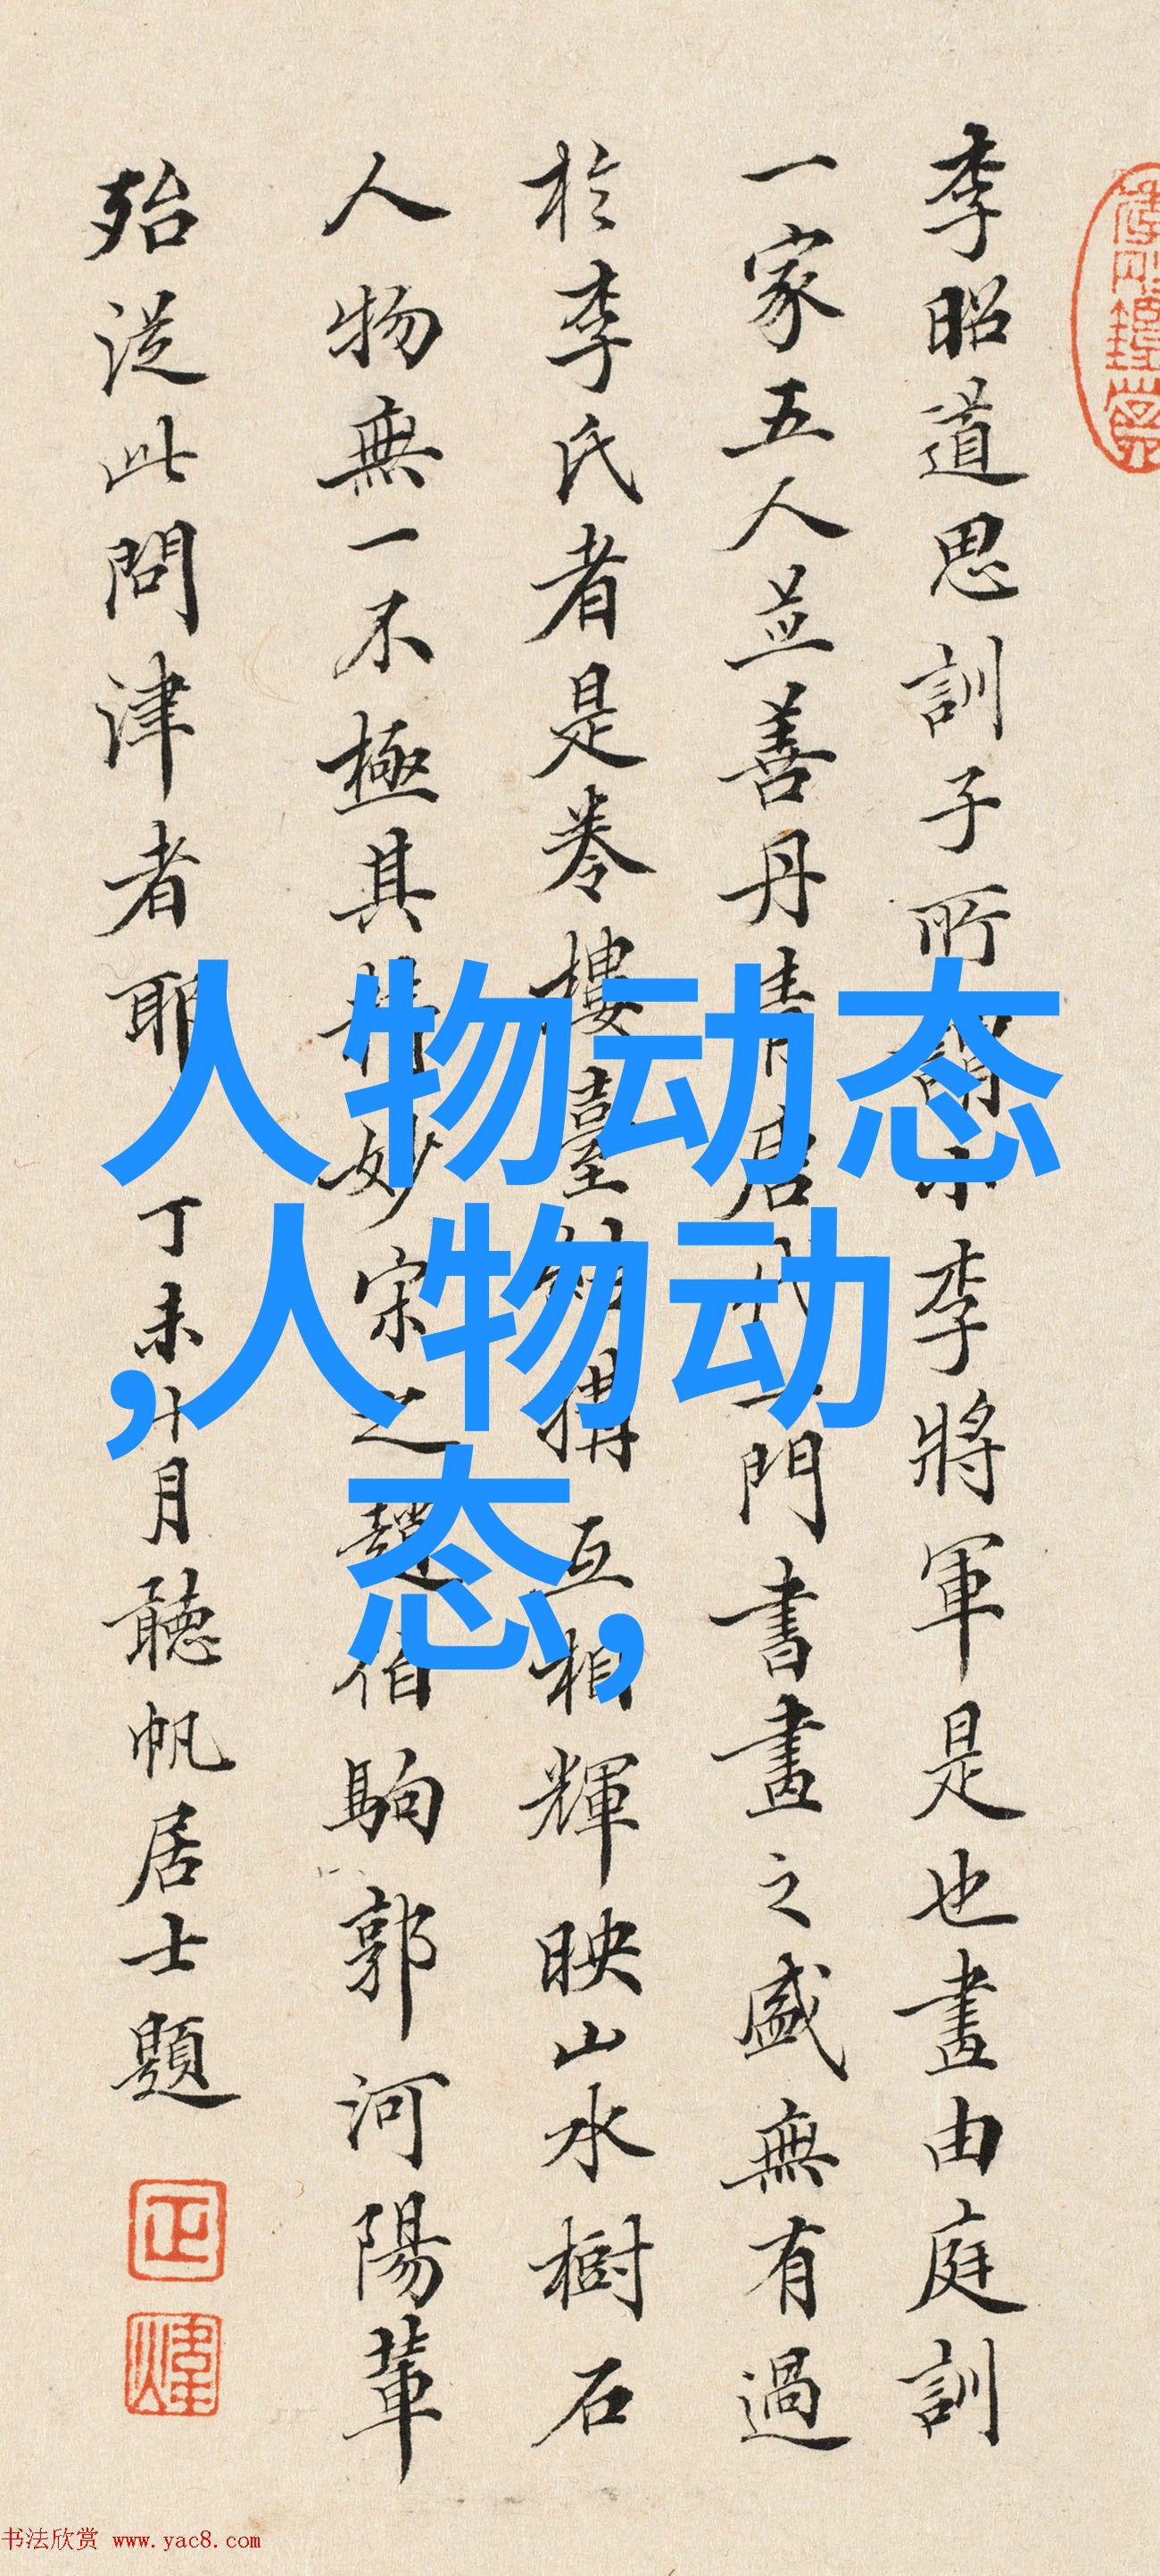 李昭道思訓子所謂小李將軍是也畫由庭訓
一家五人並善丹青唐代一門書畫之盛無有過
於李氏者是卷樓臺結構互相輝映山水樹石
人物無一不極其精妙宋之趙伯駒郭河陽輩
殆從此問津者耶 丁未十月聽帆居士題
人物动态
,人物动
态,
书法欣赏 www.yac8.com